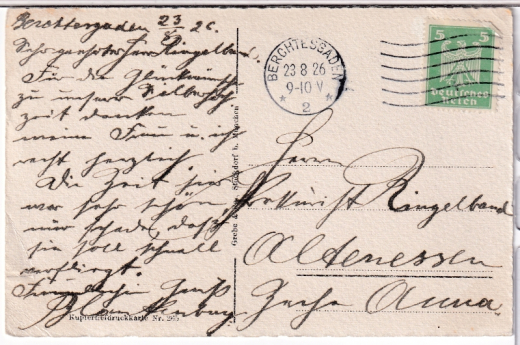 Berchtesgaden 23/8 26.
Sehr geehrter Herr Ringelband.
Für die Glückwünsche
zu unserer Halbschaft
zeit danken
meine Frau u. ich
recht herzlich.
Die Zeit hier
war sehr schön
nur schade, daß
sie so schnell
verfliegt.
Freundlichen Gruß
Kupfertiefdruckkarte Nr.
BERCHTESGADEN
23 8 26
9-10 V
* 2 *
5 5
Deutsches
Reich
Herrn
Prokurist Ringelband
Altenessen
Zeche Anna